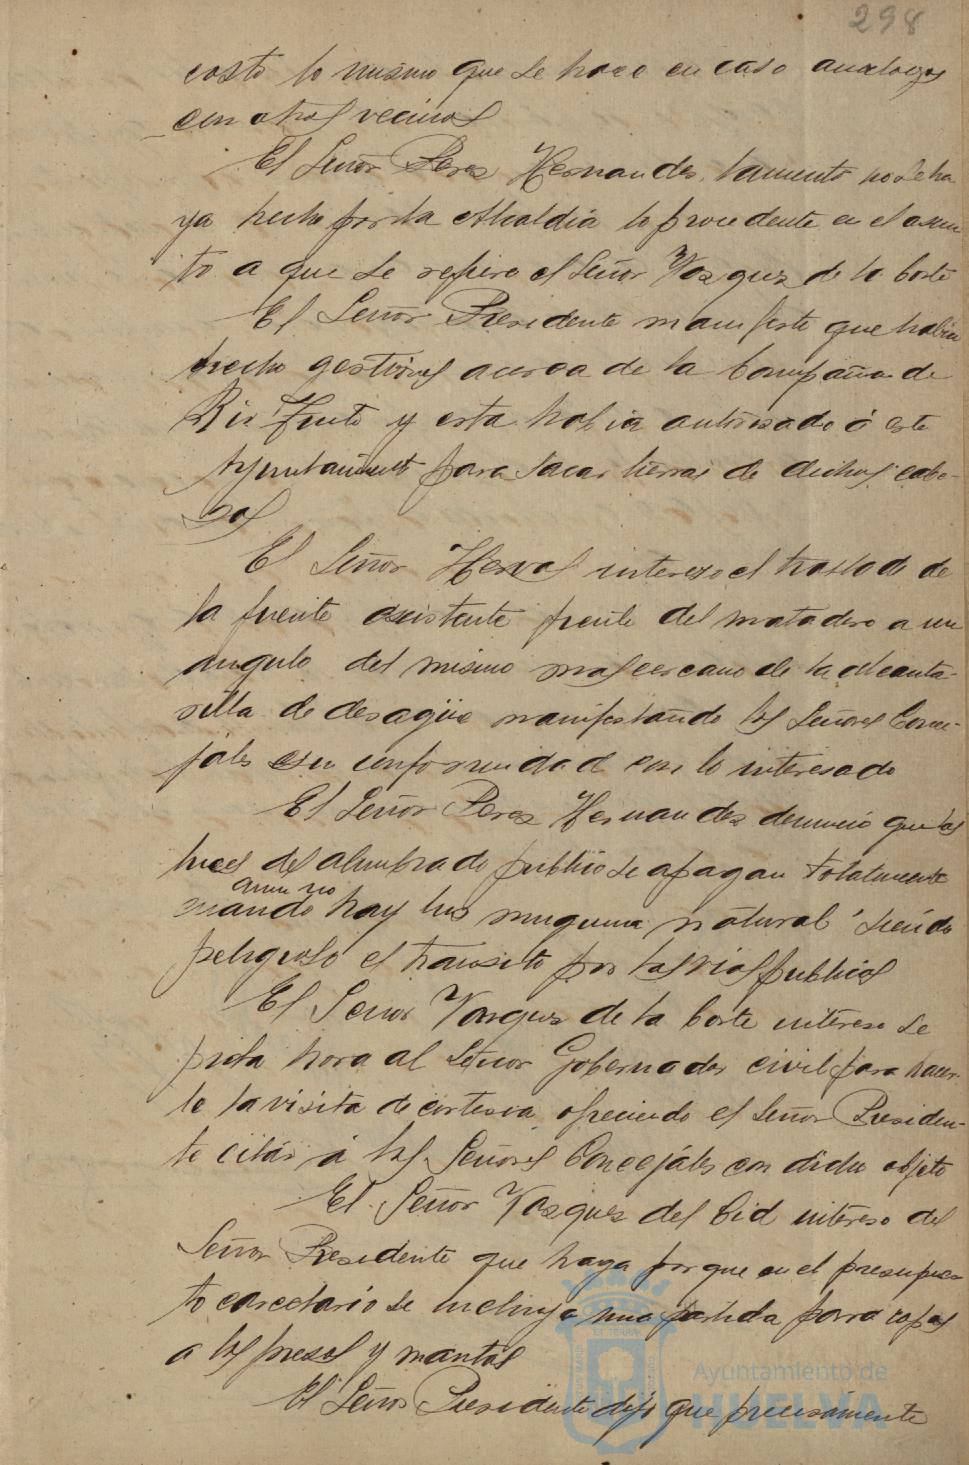 298
costo lo mismo que se hace en caso analogos
con otros vecinos
El Señor Perez Hernandez, lamento no se ha
ya hecho por la Alcaldia lo procedente en el asun
to a que se refiere el Señor Vazquez de la Corte
El Señor Presidente manifesto que habia
hecho gestiones acerca de la Compañia de
Rio Tinto y esta habia autorisado á este
Ayuntamiento para sacar tierras de dichos cabe-
sos
El Señor Hervas intereso el traslado de
la fuente existente frente del matadero a un
angulo del mismo mas cercano de la alcanta-
rilla de desagüe manifestando los Señores Conce-
jales su conformidad con lo interesado
El Señor Perez Hernandez denunció que las
luces del alumbrado publico se apagan totalmente
aun no
cuando hay luz ninguna natural siendo
peligroso el transito por las vias publicas
El Señor Vazquez de la Corte intereso se
pida hora al Señor Gobernador civil para hacer-
le la visita de cortesia ofreciendo el Señor Presiden-
te citar á los Señores Concejales con dicho objeto
El Señor Vazquez del Cid intereso del
Señor Presidente que haga porque en el presupues
to carcelario se incluya una partida para ropas
a los presos y mantas
El Señor Presidente dijo que precisamente
Ayuntamiento de
HUELVA